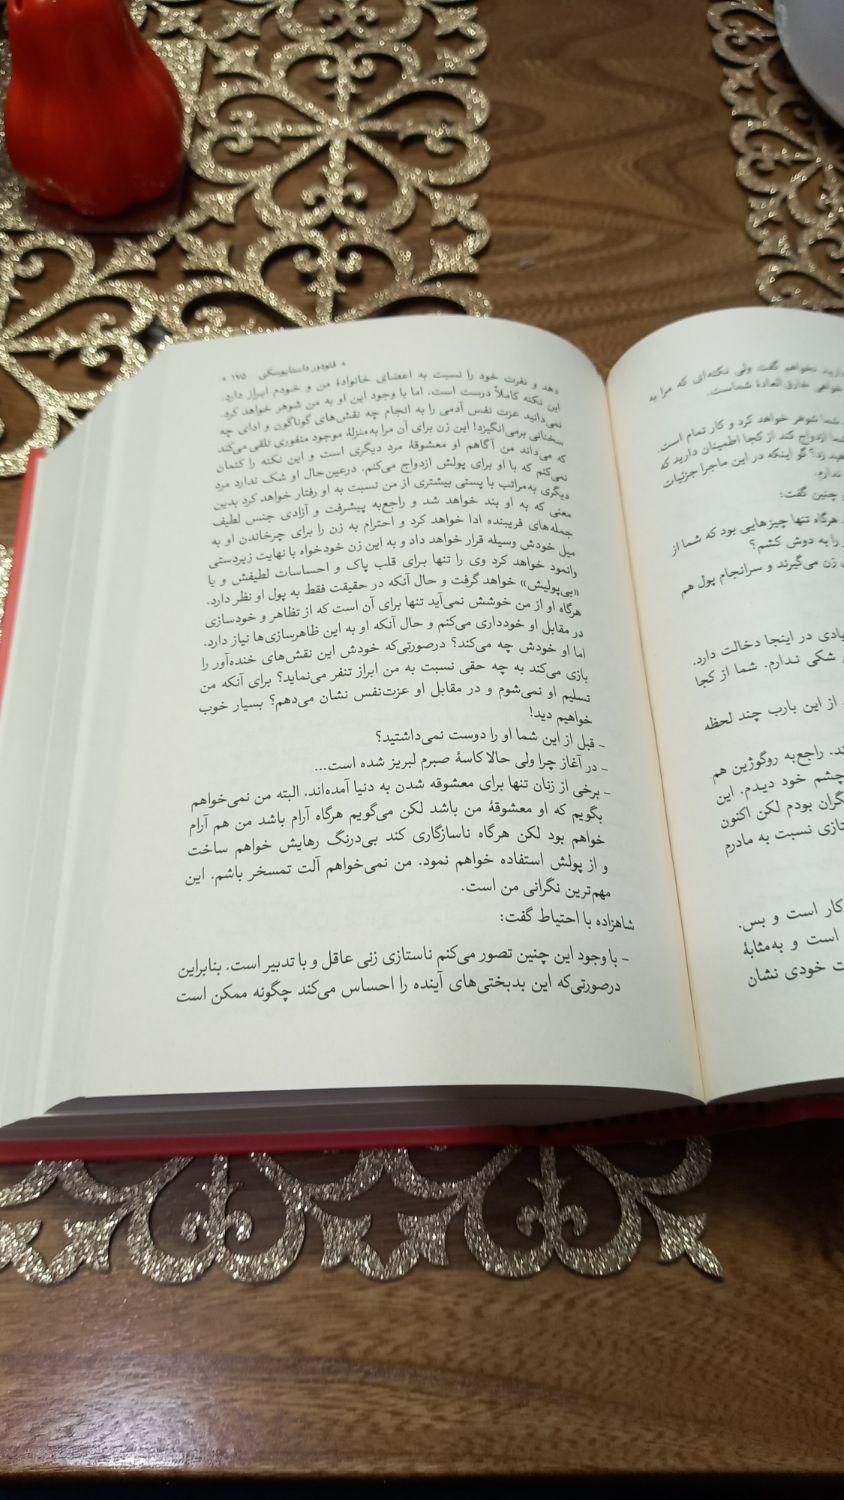 ازید نخواهم گفت ولی نکته‌ای که مرا به
خواهی خارق العادهٔ شماست.
شما شوهر خواهد کرد و کار تمام است.
شما ازدواج کند از کجا اطمینان دارید که
زد؟ گو اینکه در این ماجرا جزئیات
ندارم.
و چنین گفت:
هرگاه تنها چیزهایی بود که شما از
را به دوش کشم؟
زن می‌گیرند و سرانجام پول هم
یادی در اینجا دخالت دارد.
شکی ندارم. شما از کجا
از این بارب چند لحظه
ند. راجع‌به روگوژین هم
چشم خود دیدم. این
گران بودم لکن اکنون
تازی نسبت به مادرم
کار است و بس.
است و به‌مثابهٔ
ت خودی نشان
« فئودور داستایوسکی ۱۲۱۵ »
دهد و نفرت خود را نسبت به اعضای خانوادهٔ من و خودم ابراز دارد.
این نکته کاملاً درست است. اما با وجود این او به من شوهر خواهد کرد.
نمی‌دانید عزت نفس آدمی را به انجام چه نقش‌های گوناگون و ادای چه
سخنانی برمی‌انگیزد! این زن برای آن مرا به‌منزلهٔ موجود منفوری تلقی می‌کند
که می‌داند من آگاهم او معشوقهٔ مرد دیگری است و این نکته را کتمان
نمی‌کنم که با او برای پولش ازدواج می‌کنم. درعین‌حال او شک ندارد مرد
دیگری به‌مراتب با پستی بیشتری از من نسبت به او رفتار خواهد کرد بدین
معنی که به او بند خواهد شد و راجع‌به پیشرفت و آزادی جنس لطیف
جمله‌های فریبنده ادا خواهد کرد و احترام به زن را برای چرخاندن او به
میل خودش وسیله قرار خواهد داد و به این زن خودخواه با نهایت زبردستی
وانمود خواهد کرد وی را تنها برای قلب پاک و احساسات لطیفش و یا
«بی‌پولیش» خواهد گرفت و حال آنکه در حقیقت فقط به پول او نظر دارد.
هرگاه او از من خوشش نمی‌آید تنها برای آن است که از تظاهر و خودسازی
در مقابل او خودداری می‌کنم و حال آنکه او به این ظاهرسازی‌ها نیاز دارد.
اما او خودش چه می‌کند؟ درصورتی‌که خودش این نقش‌های خنده‌آور را
بازی می‌کند به چه حقی نسبت به من ابراز تنفر می‌نماید؟ برای آنکه من
تسلیم او نمی‌شوم و در مقابل او عزت‌نفس نشان می‌دهم؟ بسیار خوب
خواهیم دید!
- قبل از این شما او را دوست نمی‌داشتید؟
- در آغاز چرا ولی حالا کاسهٔ صبرم لبریز شده است...
- برخی از زنان تنها برای معشوقه شدن به دنیا آمده‌اند. البته من نمی‌خواهم
بگویم که او معشوقهٔ من باشد لکن می‌گویم هرگاه آرام باشد من هم آرام
خواهم بود لکن هرگاه ناسازگاری کند بی‌درنگ رهایش خواهم ساخت
و از پولش استفاده خواهم نمود. من نمی‌خواهم آلت تمسخر باشم. این
مهم‌ترین نگرانی من است.
شاهزاده با احتیاط گفت:
- با وجود این چنین تصور می‌کنم ناستازی زنی عاقل و با تدبیر است. بنابراین
درصورتی‌که این بدبختی‌های آینده را احساس می‌کند چگونه ممکن است